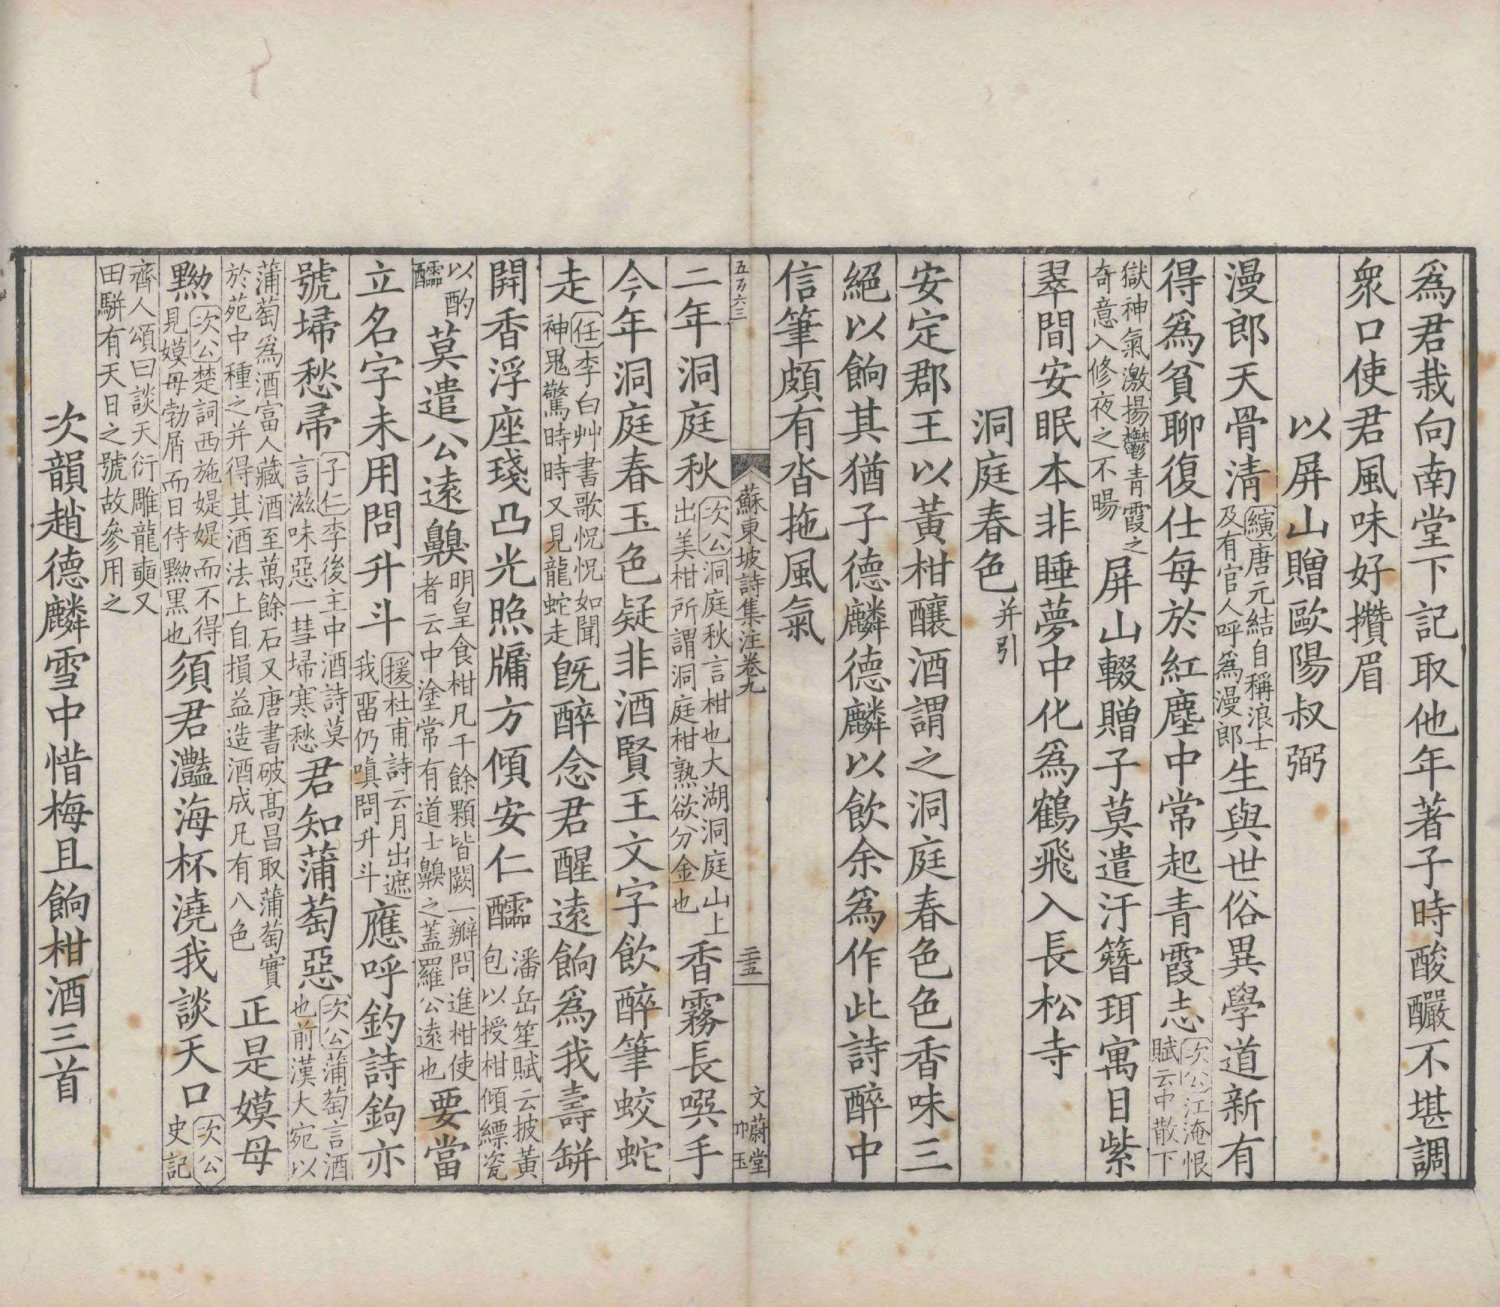 爲君栽向南堂下記取他年著子時酸釅不堪調
衆口使君風味好攢眉
以屏山贈歐陽叔弼
漫郎天骨清縯唐元結自稱浪士及有官人呼爲漫郎生與世俗異學道新有
得爲貧聊復仕每於紅塵中常起青霞志次公江淹恨賦云中散下
獄神氣激揚鬱青霞之奇意入修夜之不暘屏山輟贈子莫遣汙簪珥寓目紫
翠間安眠本非睡夢中化爲鶴飛入長松寺
洞庭春色并引
安定郡王以黃柑釀酒謂之洞庭春色色香味三
絕以餉其猶子德麟德麟以飲余爲作此詩醉中
信筆頗有沓拖風氣
五百六三
蘇東坡詩集注卷九
三五
文蔚堂
巾玉
二年洞庭秋次公洞庭秋言柑也大湖洞庭山上出美柑所謂洞庭柑熟欲分金也香霧長噀手
今年洞庭春玉色疑非酒賢王文字飲醉筆蛟蛇
走任李白艸書歌怳怳如聞神鬼驚時時又見龍蛇走旣醉念君醒遠餉爲我壽缾
開香浮座琖凸光照牖方傾安仁醽潘岳笙賦云披黃包以授柑傾縹瓷
以酌醽莫遣公遠齅明皇食柑凡千餘顆皆闕一瓣問進柑使者云中塗常有道士齅之蓋羅公遠也要當
立名字未用問升斗援杜甫詩云月出遮我畱仍嗔問升斗應呼釣詩鉤亦
號埽愁帚子仁李後主中酒詩莫言滋味惡一彗埽寒愁君知蒲萄惡次公蒲萄言酒也前漢大宛以
蒲萄爲酒富人藏酒至萬餘石又唐書破高昌取蒲萄實於苑中種之并得其酒法上自損益造酒成凡有八色正是嫫母
黝次公楚詞西施媞媞而不得見嫫母勃屑而日侍黝黑也須君灩海杯澆我談天口次公史記
齊人頌曰談天衍雕龍奭又田駢有天口之號故參用之
次韻趙德麟雪中惜梅且餉柑酒三首